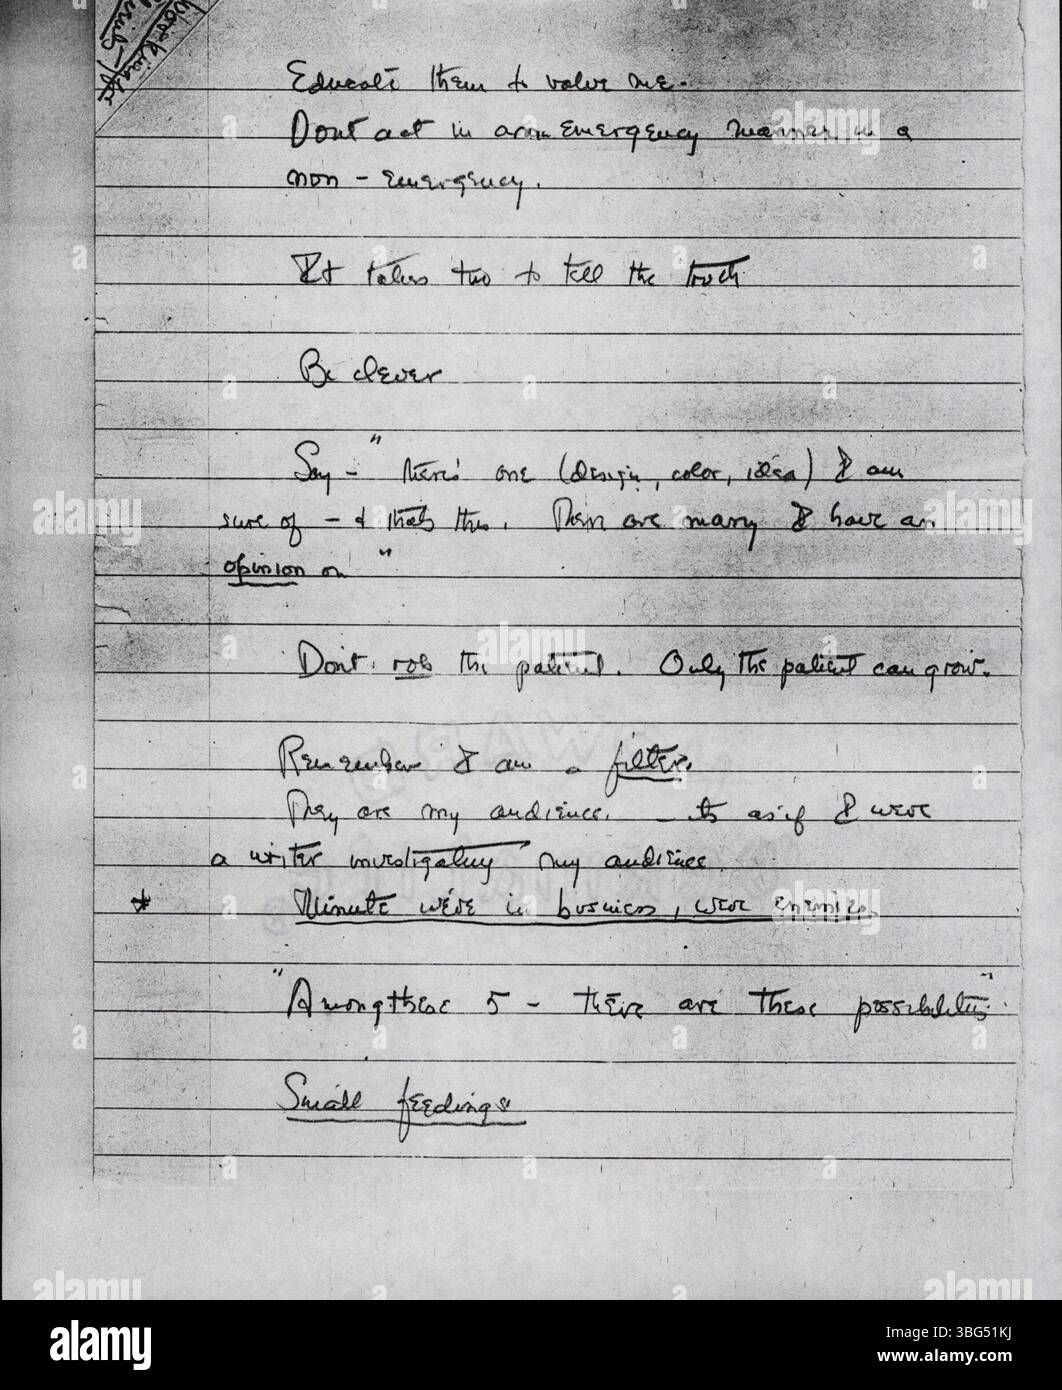 Working
Educate them to value me.
Dont act in an emergency manner in a
non - emergency.
It takes two to tell the truth
Be clever
Say - " there's one (design, color, idea) I am
sure of - & thats this. There are many I have an
opinion on "
Don't rob the patient. Only the patient can grow.
Remember I am a filter.
They are my audience. - its as if I were
a writer investigating my audience.
* Minute we're in business, were enemies
"Among these 5 - there are these possibilities"
Small feedings
alamy
Image ID: 3BG51KJ
www.alamy.com